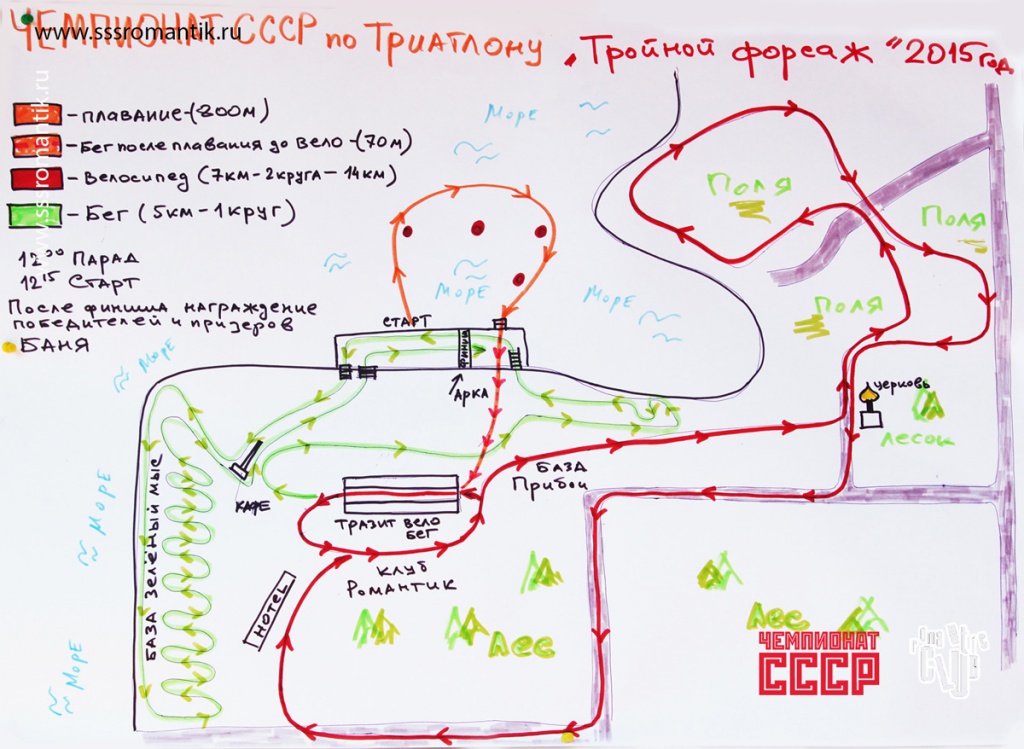 ЧЕМПИОНАТ СССР по Триатлону „Тройной форсаж“ 2015 год
www.sssromantik.ru
www.sssromantik.ru
- плавание-(800м)
- Бег после плавания до вело -(70м)
- Велосипед (7км-2круга-14км)
- Бег (5км-1круг)
12 00 ПАРАД
12 15 СТАРТ
После финиша награждение
победителей и призеров
БАНЯ
Море
Море
Море
Море
Море
Море
Поля
Поля
Поля
СТАРТ
ФИНИШ
АРКА
церковь
Лесок
КАФЕ
БАЗА
Прибой
ТРАЗИТ ВЕЛО
БЕГ
БАЗА ЗЕЛЁНЫЙ МЫС
КЛУБ
Романтик
HOTEL
Лес
Лес
ЧЕМПИОНАТ
СССР